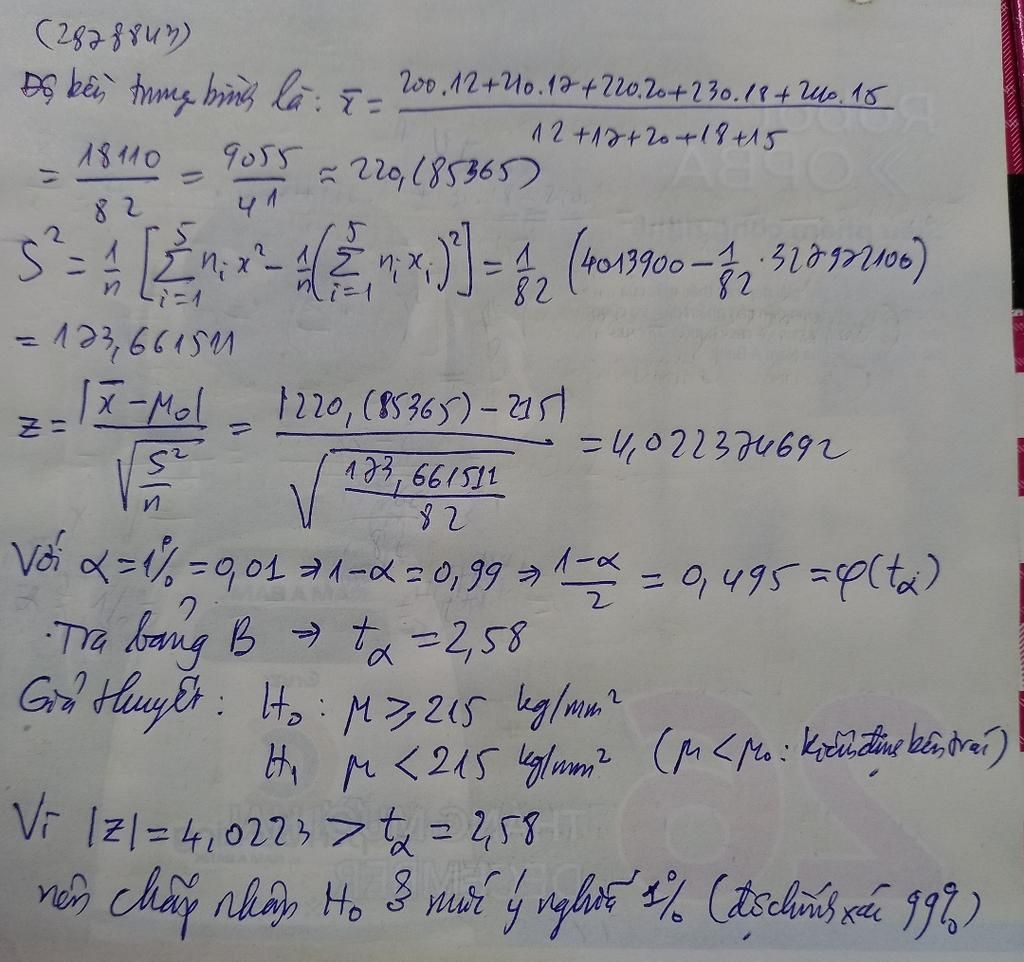 (2878843)
Độ bền trung bình là: x̄ = (200.12+210.17+220.20+230.18+240.15)/(12+17+20+18+15)
= 18110/82 = 9055/41 ≈ 220,(85365)
S² = 1/n [∑_{i=1}^{5} nᵢ x² - 1/n (∑_{i=1}^{5} nᵢ xᵢ)²] = 1/82 (4013900 - 1/82 . 327972100)
= 173,661511
z = |x̄ - μ₀| / √(S²/n) = |220,(85365) - 215| / √(173,661511/82) = 4,022374692
Với α = 1% = 0,01 ⇒ 1-α = 0,99 ⇒ (1-α)/2 = 0,495 = φ(t_α)
Tra bảng B ⇒ t_α = 2,58
Giả thuyết: H₀ : μ ≥ 215 kg/mm²
H₁ μ < 215 kg/mm² (μ < μ₀ : kiểm định bên trái)
Vì |z| = 4,0223 > t_α = 2,58
nên chấp nhận H₀ ở mức ý nghĩa 1% (độ chính xác 99%)